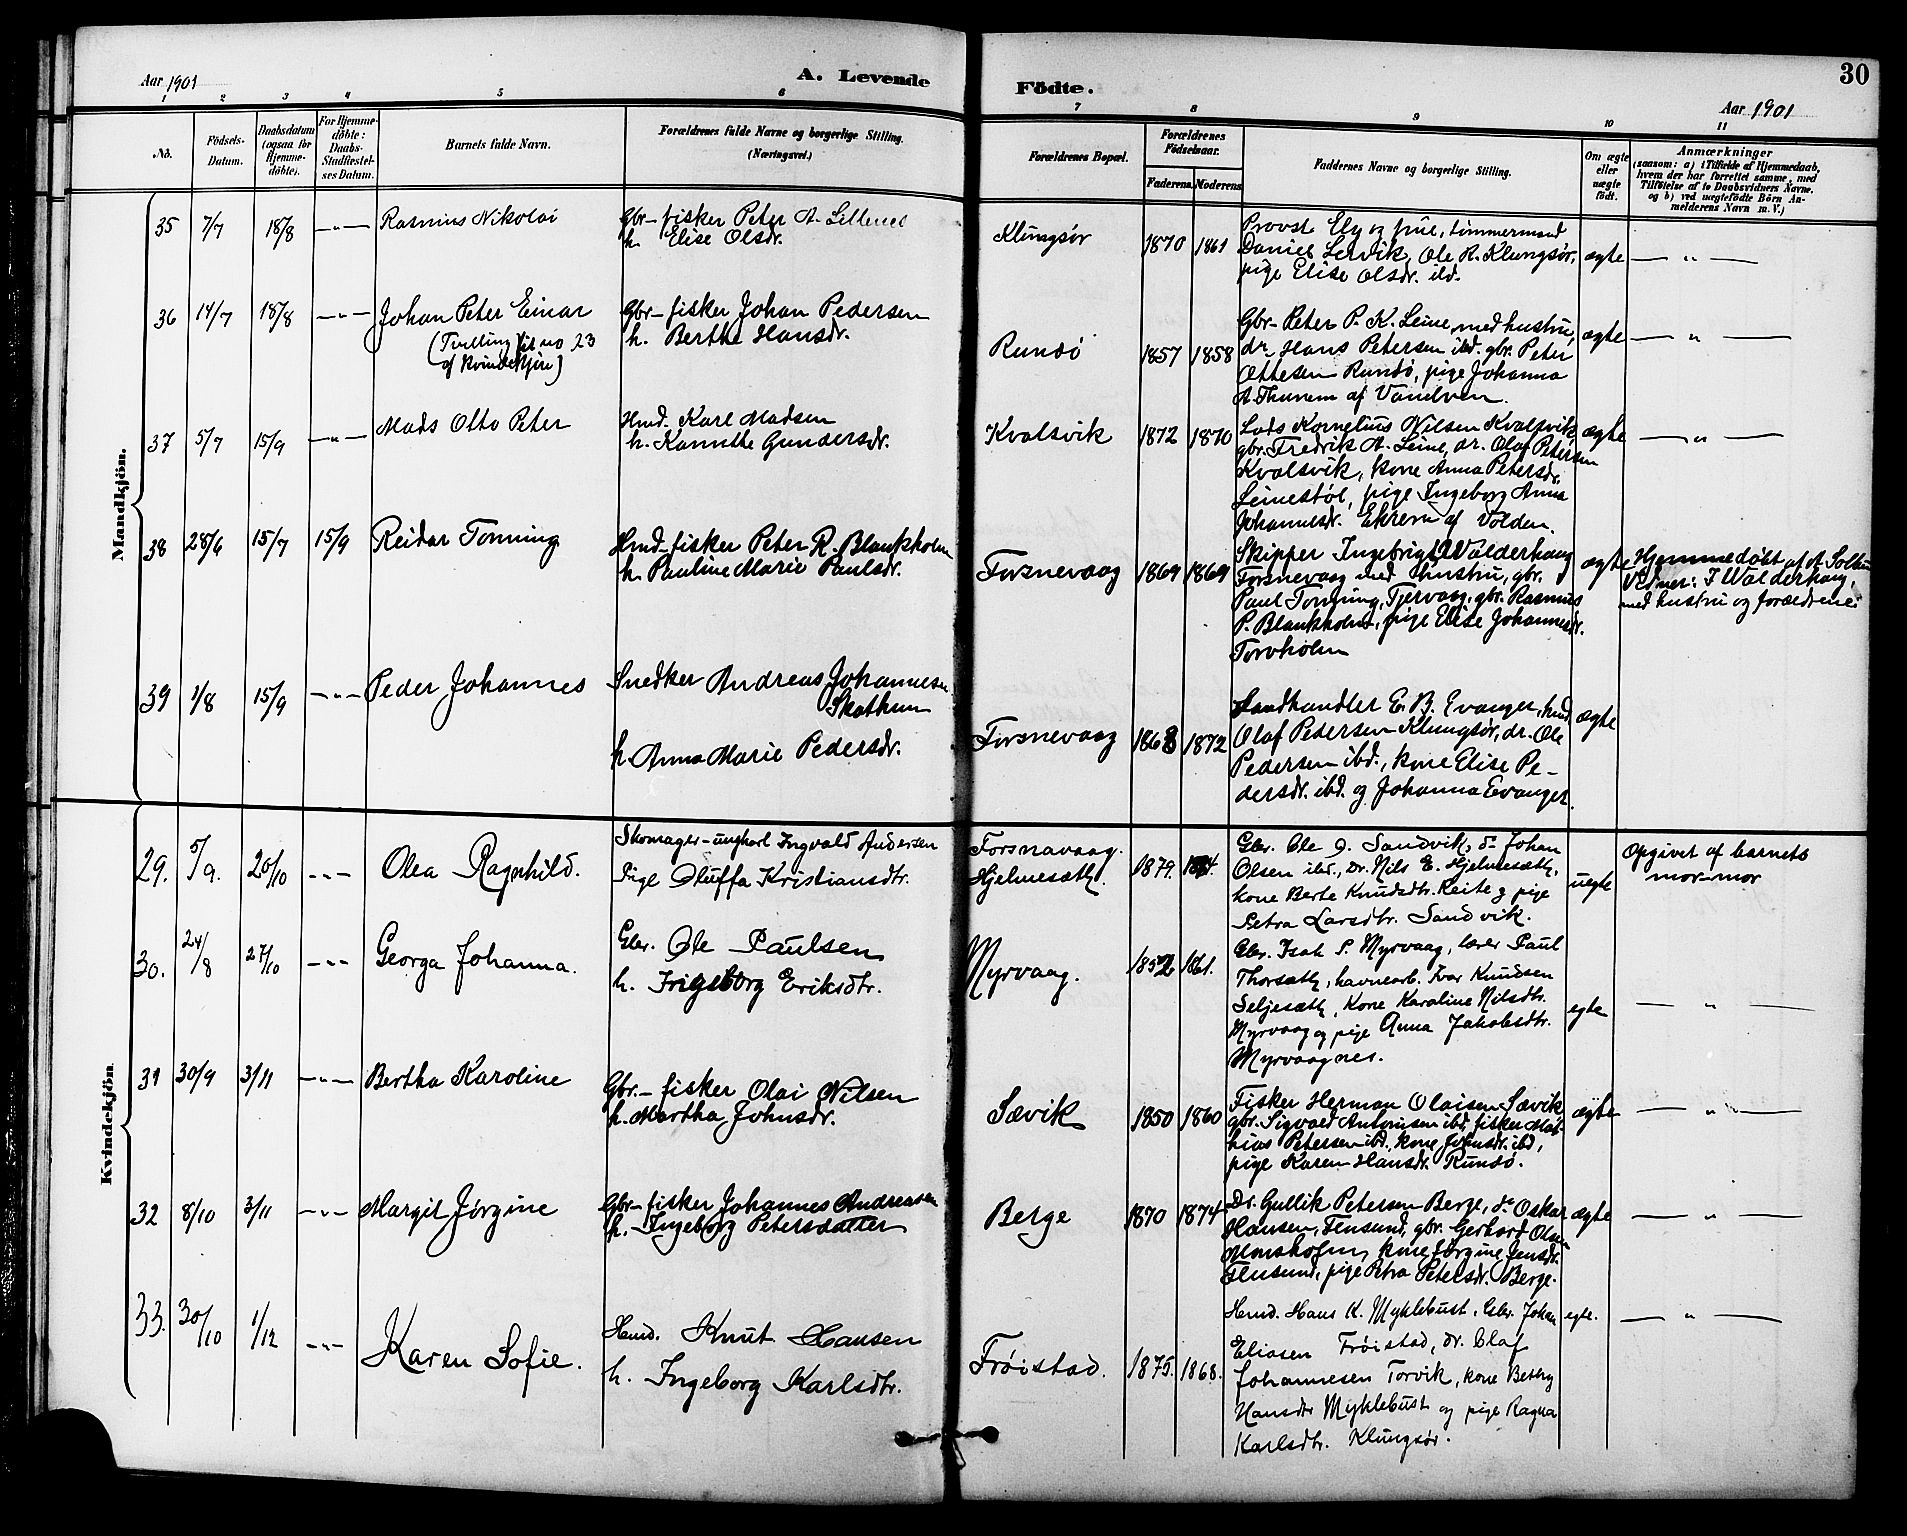 Aar 1901
A. Levende
Födte.
30
Aar 1901
1 2 3 4 5 6 7 8 9 10 11
No.
Födsels-
Datum.
Daabsdatum
(ogsaa for
Hjemme-
döbte).
For Hjemme-
döbte:
Daabs-
Stadfæstel-
ses Datum.
Barnets fulde Navn.
Forældrenes fulde Navne og borgerlige Stilling.
(Næringsvei.)
Forældrenes Bopæl.
Forældrenes
Födselsaar.
Faderens.
Moderens.
Faddernes Navne og borgerlige Stilling.
Om ægte
eller
uægte
födt.
Anmærkninger
(saasom: a) i Tilfælde af Hjemmedaab,
hvem der har forrettet samme, med
Tilföielse af to Daabsvidners Navne.
og b) ved uægtefödte Börn An-
melderens Navn m. V.)
Mandkjön.
35 7/7 18/8 —"— Rasmus Nikolai
Gbr- fisker Peter A.
h. Elise Olsdr.
Klungsør
1870 1861
Provst Ely og frue, tømmermand
Daniel Lervik, Ole R. Klungsør,
pige Elise Olsdr. ibd.
ægte — " —
36 14/7 18/8 —"— Johan Peter Einar
(Tvilling til no 23
af kvindekjøn)
Gbr- fisker Johan Pedersen
h. Berthe Hansdr.
Rundö
1857 1858
Gbr- Peter P. K. Leine, med hustru,
dr. Hans Petersen ibd. gbr. Peter
Ottesen Rundö, pige Johanna
A. Thunem af Vanelven.
ægte — " —
37 5/7 15/9 —"— Mads Otto Peter
Hmd. Karl Madsen
h. Gundersdr.
Kvalsvik
1872 1870
Lods Kornelius Nilsen Kvalsvik,
gbr. Fredrik A. Leine, dr. Olaf Petersen
Kvalsvik, kone Anna Petersdr.
Leinestøl, pige Ingeborg Anna
Johannesdr. Ekrem af Volden.
ægte — " —
38 28/6 15/7 15/9 Reidar Tonning
Hmd- fisker Peter R. Blankholm
h. Pauline Marie Paulsdr.
Fosnevaag
1869 1869
Skipper Ingebrigt Valderhaug
Fosnevaag med hustru, gbr.
Paul Tonning, Tjervaag, gbr. Rasmus
P. Blankholm, pige Elise Johannesdr.
Torvholm
ægte
Hjemmedøbt af A.
Vidner: I Walderhaug,
med hustru og forældrene.
39 1/8 15/9 —"— Peder Johannes
Snedker Andreas Johannesen
h. Anna Marie Pedersdr.
Fosnevaag
1868 1872
Landhandler E. B. Evanger, hmd
Olaf Pedersen Klungsør, dr. Ole
Pedersen ibd., kone Elise Pe-
dersdr. ibd. og Johanna Evanger.
ægte
Kvindekjön.
29. 5/9. 20/10 —"— Olea Ragnhild.
Skomager- ungkarl Ingvald Andersen
Pige Oluffa Kristiansdtr.
Forsnavaag.
Hjelmesæth.
1879.
Gbr. Ole J. Sandvik, dr Johan
Olsen ibd., Dr. Nils E. Hjelmesæth,
kone Berte Knudsdtr. Reite og pige
Petra Larsdtr. Sandvik.
uegte
Opgivet af barnets
mor-mor
30. 24/8 27/10 —"— Georga Johanna.
Gbr. Ole Paulsen
h. Ingeborg Eriksdtr.
Myrvaag.
1852 1861.
Gbr. Isak P. Myrvaag, lærer Paul
Thorsæth, havnearb. Ivar Knudsen
Seljesæth, Kone Karoline Nilsdtr.
Myrvaag og pige Anna Jakobsdtr.
Myrvaagnes.
egte — " —
31 30/9 3/11 —"— Bertha Karoline
Gbr.- fisker Olai Nilsen
h. Martha Johnsdr.
Sævik
1850 1860
Fisker Herman Olaisen Sævik
gbr. Sigvald Antonisen ibd, fisker Mat-
hias Petersen ibd, kone Johnsdr. ibd,
pige Karen Hansdr. Rundö.
ægte — " —
32 8/10 3/11 —"— Margit Jørgine
Gbr- fisker Johannes Andreasen
h. Ingeborg Petersdatter
Berge
1870 1874
Dr. Gullik Petersen Berge, dr Oskar
Hansen, Flusund, gbr. Gerhard Olsen
kone Jørgine Jensdr.
Flusund, pige Petra Petersdr. Berge.
ægte — " —
33. 30/10 1/12 —"— Karen Sofie.
Hmd. Knut Hansen
h. Ingeborg Karlsdtr.
Frøistad.
1875. 1868.
Hmd. Hans K. Myklebust, Gbr. Johan
Eliasen Frøistad, dr. Olaf
Johannesen Torvik, kone
Hansdtr Myklebust og pige Ragna
Karlsdtr. Klungsør.
egte. — " —